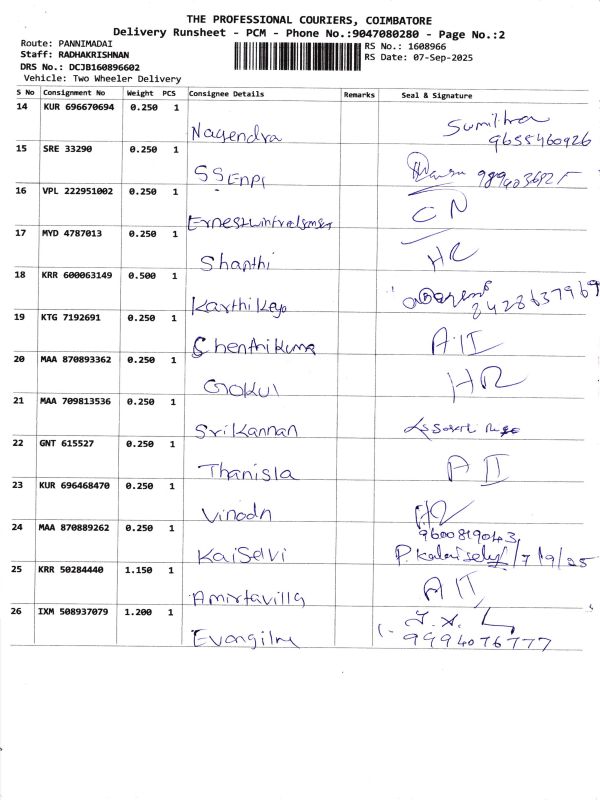 THE PROFESSIONAL COURIERS, COIMBATORE
Delivery Runsheet - PCM - Phone No.:9047080280 - Page No.:2
Route: PANNIMADAI
RS No.: 1608966
Staff: RADHAKRISHNAN
RS Date: 07-Sep-2025
DRS No.: DCJB160896602
Vehicle: Two Wheeler Delivery
S No Consignment No Weight PCS Consignee Details Remarks Seal & Signature
14 KUR 696670694 0.250 1
Nagendra Sumithra
9655460926
15 SRE 33290 0.250 1
SSEnpi
16 VPL 222951002 0.250 1
CN
17 MYD 4787013 0.250 1
Shanthi HR
18 KRR 600063149 0.500 1
Karthikeyo 8428637969
19 KTG 7192691 0.250 1
Chenthikuma AII
20 MAA 870893362 0.250 1
Gokul HR
21 MAA 709813536 0.250 1
Srikannan
22 GNT 615527 0.250 1
Thanisla AII
23 KUR 696468470 0.250 1
Vinodn HR
24 MAA 870889262 0.250 1
9600819043
Kaiselvi P. Kalaiselvi /7/9/25
25 KRR 50284440 1.150 1
Amirtavilly AII
26 IXM 508937079 1.200 1
Evangiline 9994076777